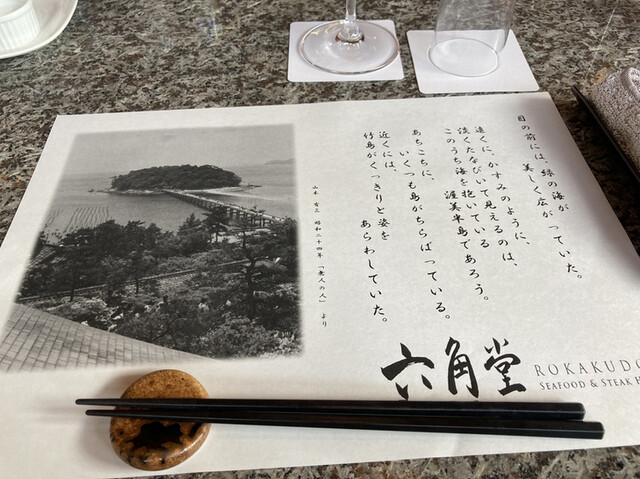 目の前には、緑の海が
美しく広がっていた。
遠くに、かすみのように、
淡くたなびいて見えるのは、
このうち海を抱いている
渥美半島であろう。
あちこちに、
いくつも島がちらばっている。
近くには、
竹島がくっきりと姿を
あらわしていた。
山本 有三 昭和二十四年 「無事の人」 より
六角堂
ROKAKUDO
SEAFOOD & STEAK H